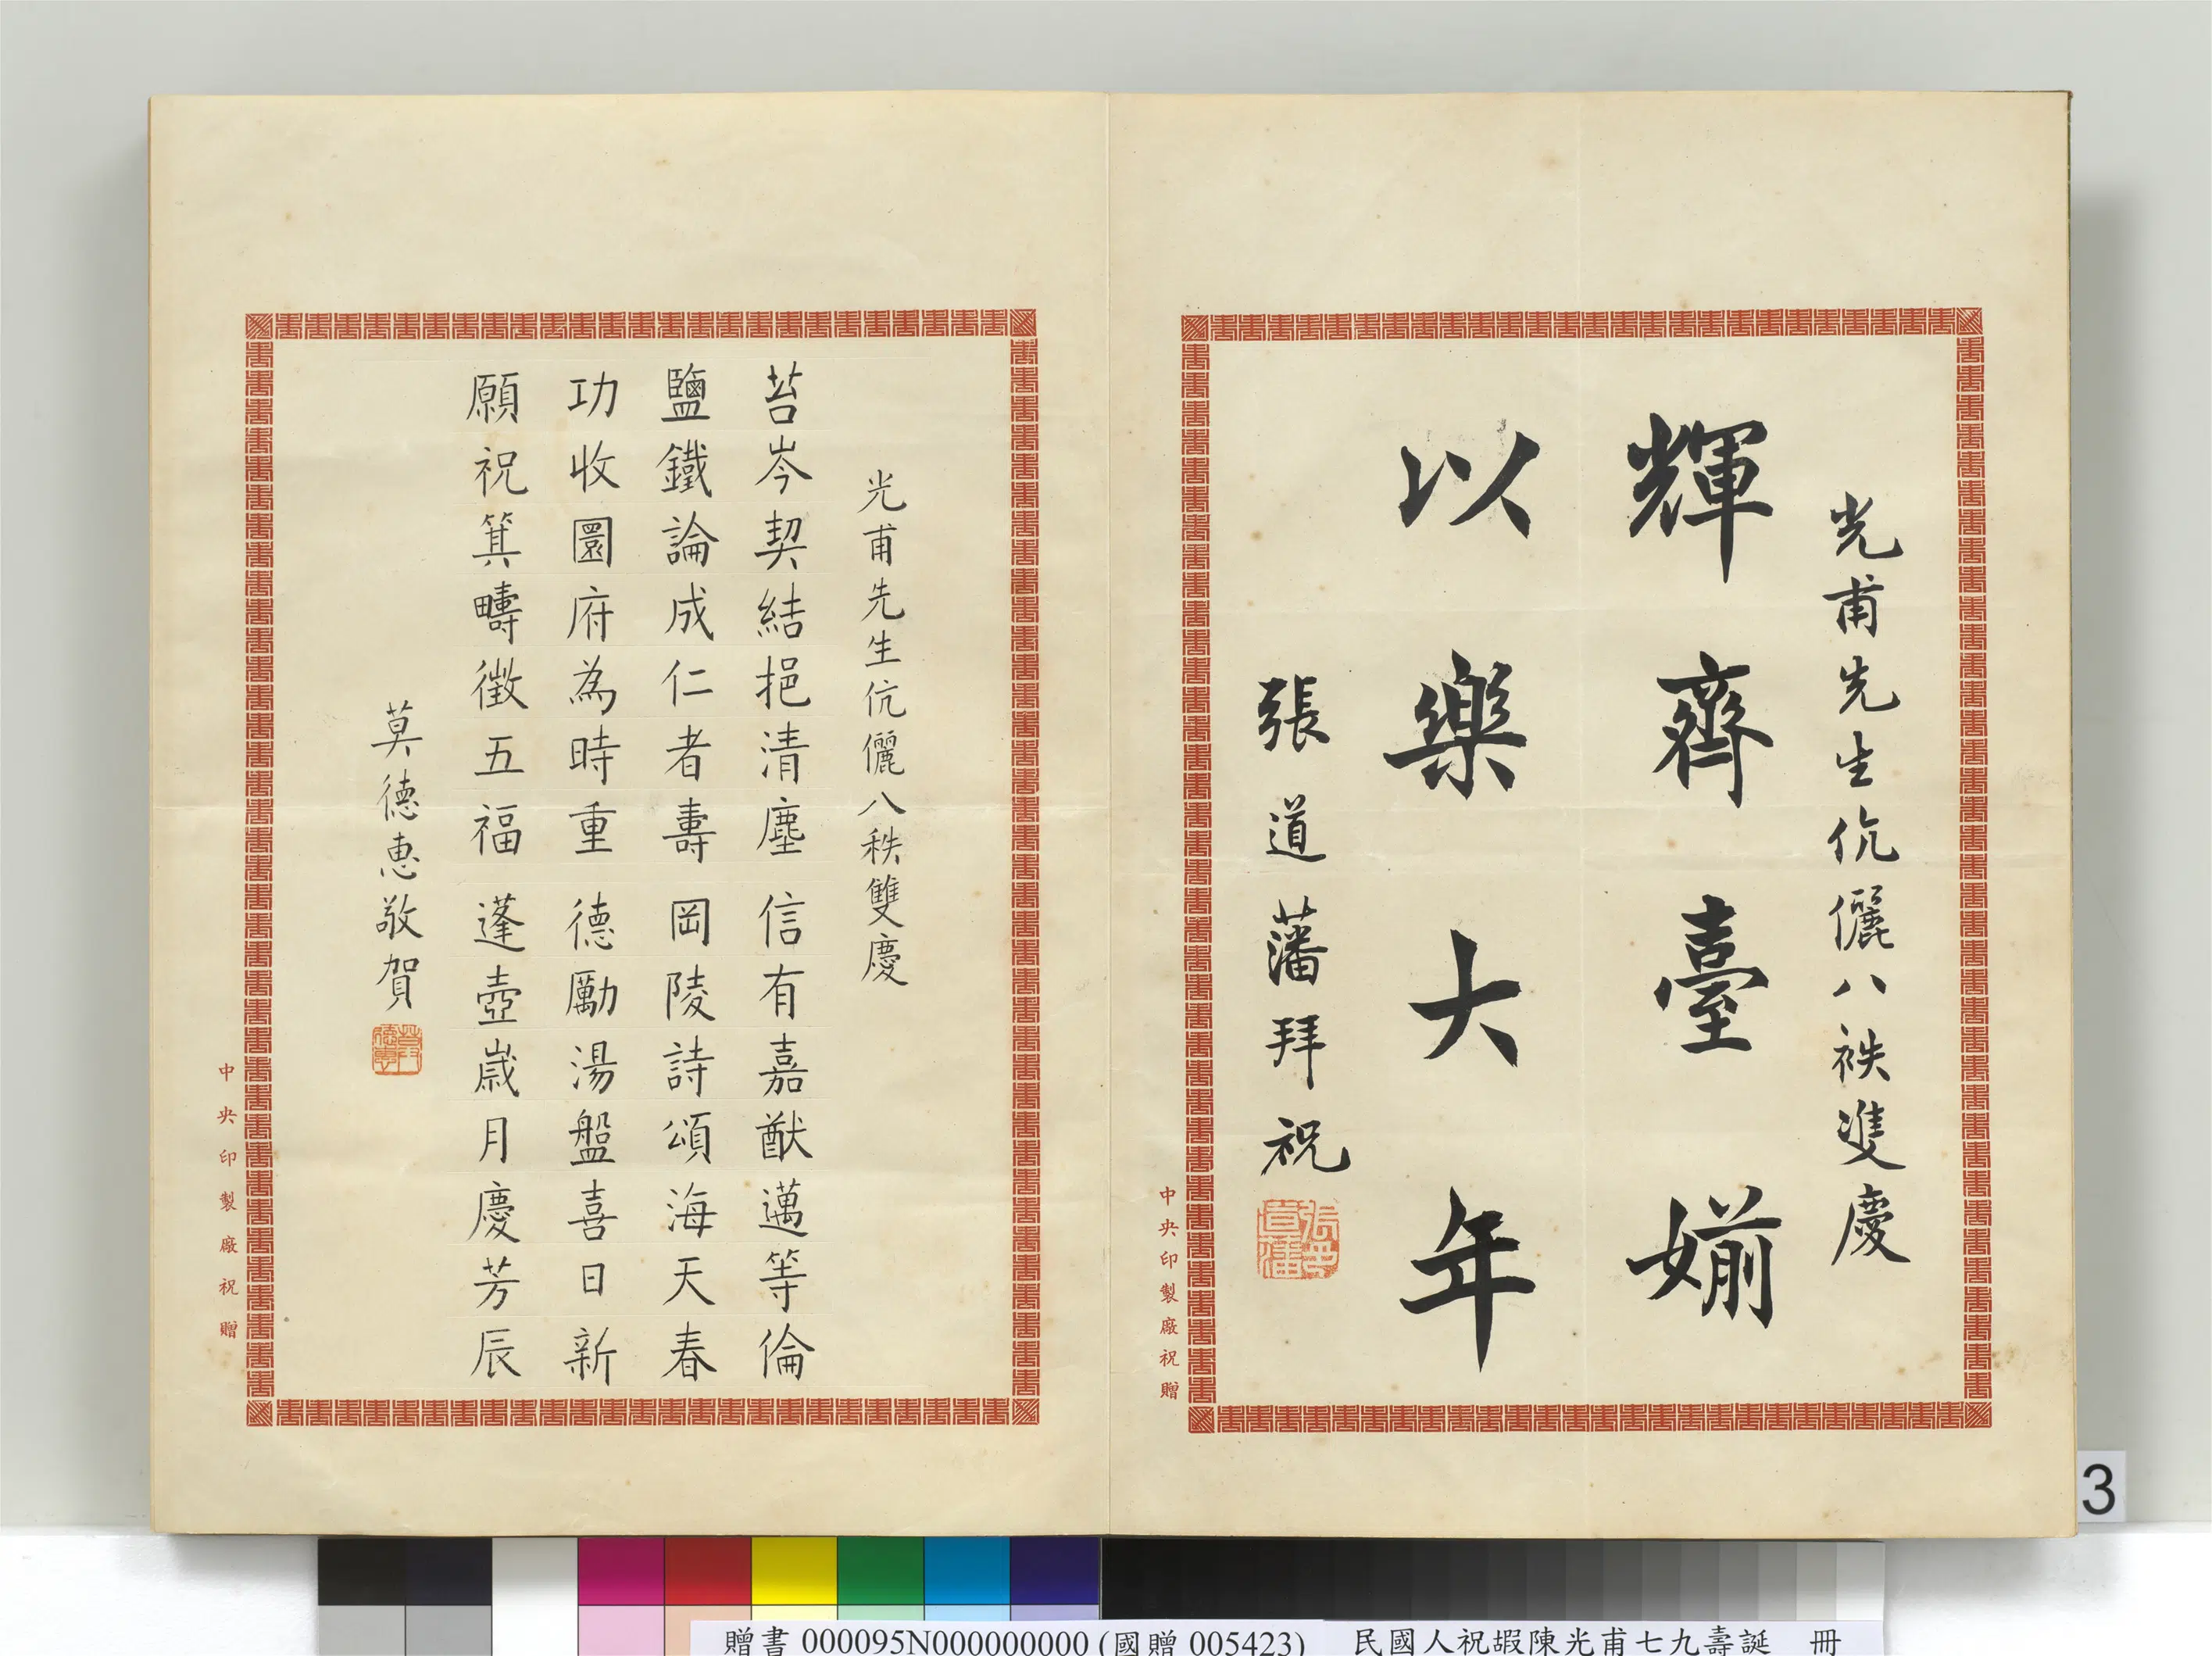 光甫先生伉儷八袟雙慶
輝齊臺婺
以樂大年
張道藩拜祝
張道藩
中央印製廠祝贈
光甫先生伉儷八秩雙慶
苔岑契結挹清塵信有嘉猷邁等倫
鹽鐵論成仁者壽岡陵詩頌海天春
功收圜府為時重德勵湯盤喜日新
願祝箕疇徵五福蓬壺歲月慶芳辰
莫德惠敬賀
莫德惠
中央印製廠祝贈
3
贈書 000095N000000000 (國贈 005423) 民國人祝嘏陳光甫七九壽誕 冊